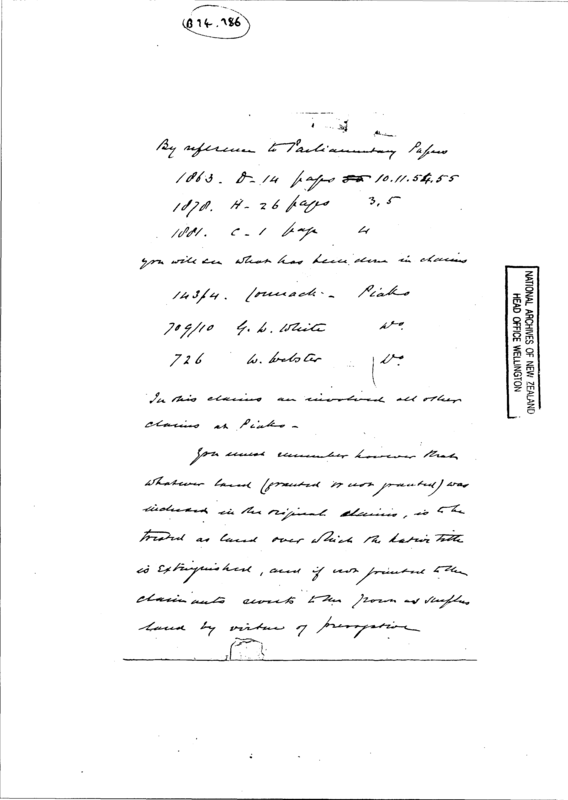 B 14.786
By reference to Parliamentary Papers
1863. D-14 pages 10.11.54.55
1878. H-26 pages 3,5
1881. C-1 page 4
you will see what has been done in claims
143/4. - Piako
709/10 G. W. White Do.
726 W. Webster Do
In this claims are involved all other
claims at Piako -
You must remember however that
whatever land (granted or not granted) was
included in the original claims, is to be
treated as land over which the Native title
is extinguished, and if not granted to the
claimants reverts to the Crown as surplus
land by virtue of preemptive
NATIONAL ARCHIVES OF NEW ZEALAND
HEAD OFFICE WELLINGTON